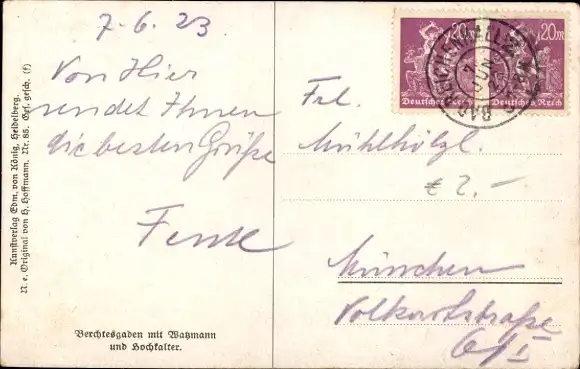 7.6.23
Von Hier
sendet Ihnen
die besten Grüße
Kunstverlag Edm. von König, Heidelberg.
N. e. Original von H. Hoffmann. Nr. 85. Ges. gesch. (f)
Berchtesgaden mit Watzmann
und Hochkalter.
20m 20m
Deutsches Reich Deutsches Reich
BAD REICHENHALL
7 JUN
Frl.
Mühlhölzl.
€ 2,-
München
Volkartstraße